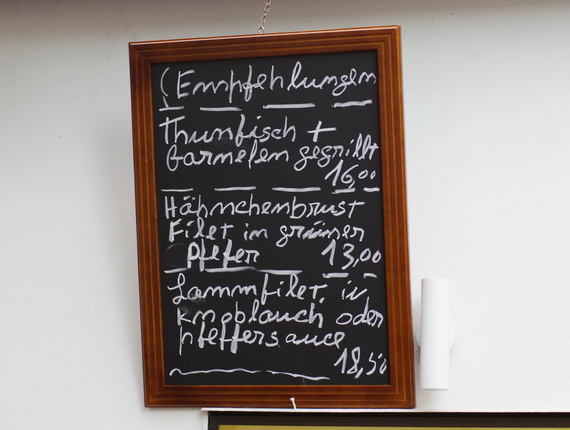 (Empfehlungen
Thunfisch +
Garnelen gegrillt
16,00
Hähnchenbrust
Filet in grüner
Pfefer 13,00
Lammfilet in
Knoblauch oder
pfeffersauce
18,50